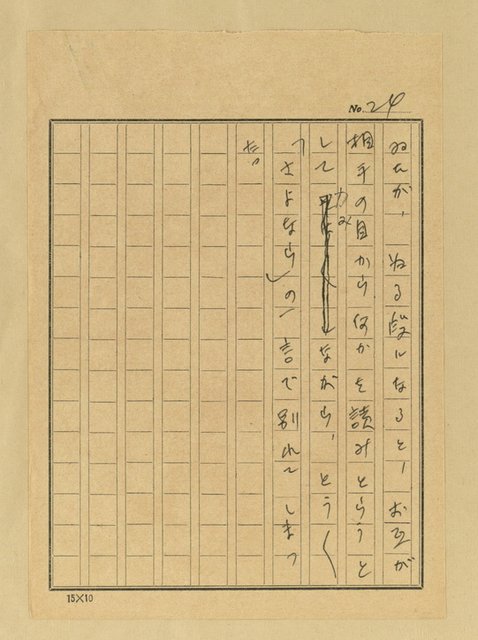 No. 24
ねたが、ねる段になると、お互が
相手の目から何かを読みとらうと
して力みながら、とう〱
「さよなら」の一言で別れてしまつ
た。
15×10